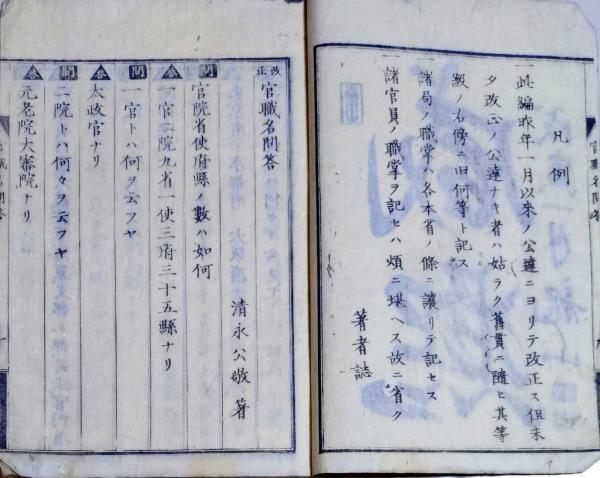 凡例
一此編昨年一月以來ノ公達ニヨリテ改正ス但未
タ改正ノ公達ナキ者ハ姑ラク舊貫ニ隨ヒ其等
級ノ右傍ニ旧何等ト記ス
一諸局ノ職掌ハ各本省ノ條ニ讓リテ記セス
一諸官員ノ職掌ヲ記セハ煩ニ堪ヘス故ニ省ク
著者誌
改正官職名問答
清永公敬著
問官院省使府縣ノ數ハ如何
答一官二院九省一使三府三十五縣ナリ
問一官トハ何ヲ云フヤ
答太政官ナリ
問二院トハ何々ヲ云フヤ
答元老院大審院ナリ
官職名問答